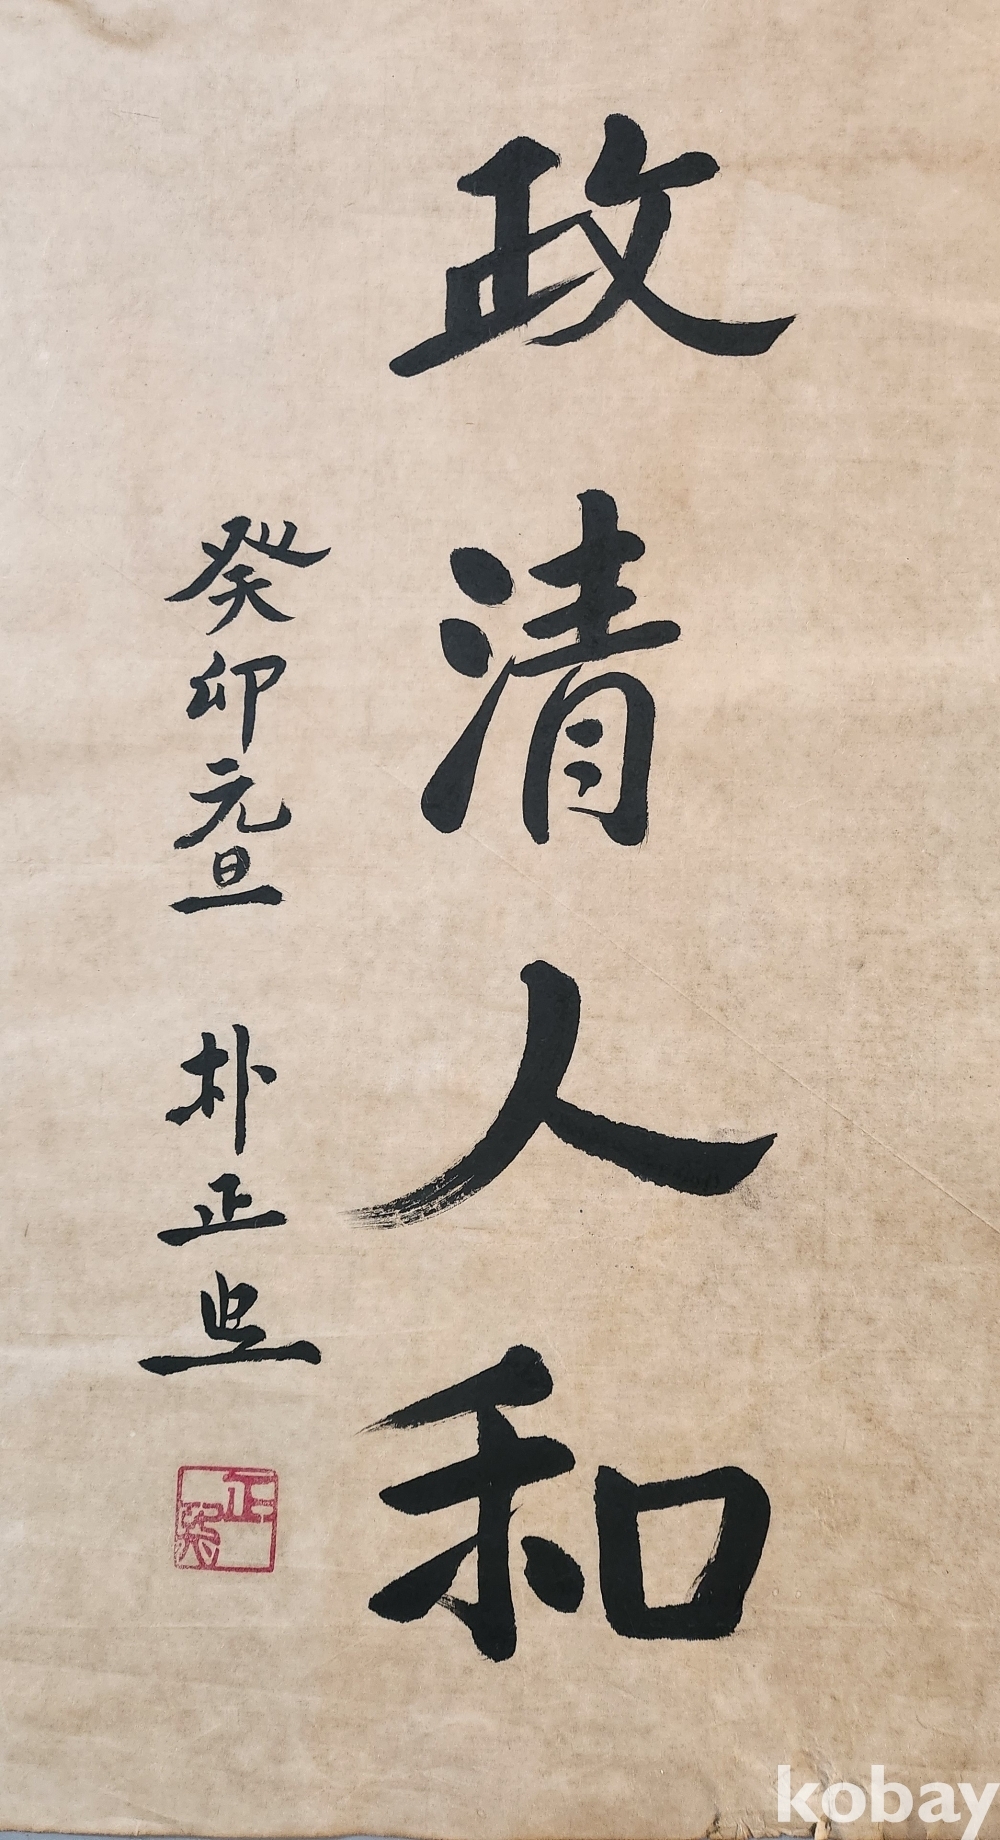 政清人和
癸卯元旦 朴正熙
kobay